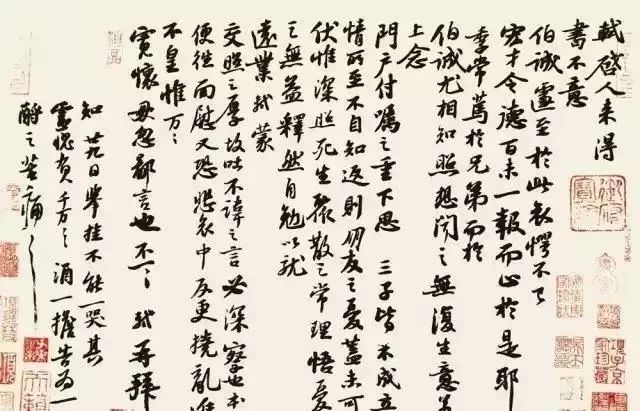 軾啓人来得
書不意
伯誠遽至於此哀愕不已
宏才令德百未一報而止於是耶
季常篤於兄弟而於
伯誠尤相知照想聞之無復生意
上念
門户付囑之重下思三子皆未成立
情所至不自知返則朋友之憂蓋未可
伏惟深照死生聚散之常理悟憂
之無益釋然自勉以就
遠業軾蒙
交照之厚故吐不諱之言必深察也本
便往面慰又恐悲哀中反更撓亂進
不皇惟万々
寬懷毋忽鄙言也不一々軾再拜
知廿九日舉挂不能一哭其
靈愧負千万々酒一擔告為一
酹之苦痛々